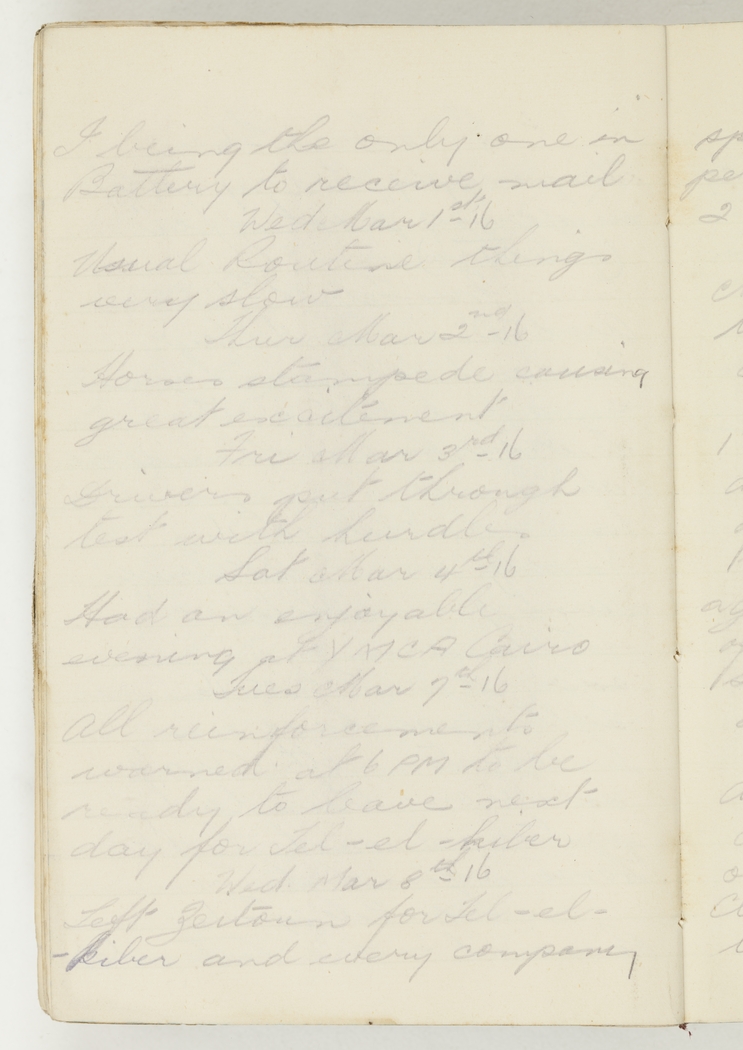 I being the only one in
Battery to receive mail
Wed Mar 1st-16
Usual Routine things
very slow
Thur Mar 2nd-16
Horses stampede causing
great excitement
Fri Mar 3rd-16
Drivers put through
test with hurdles
Sat Mar 4th-16
Had an enjoyable
evening at YMCA Cairo
Tues Mar 7th-16
All reinforcements
warned at 6 PM to be
ready to leave next
day for Tel-el-kiber
Wed. Mar 8th-16
Left Zeitoun for Tel-el-
-kiber and every company